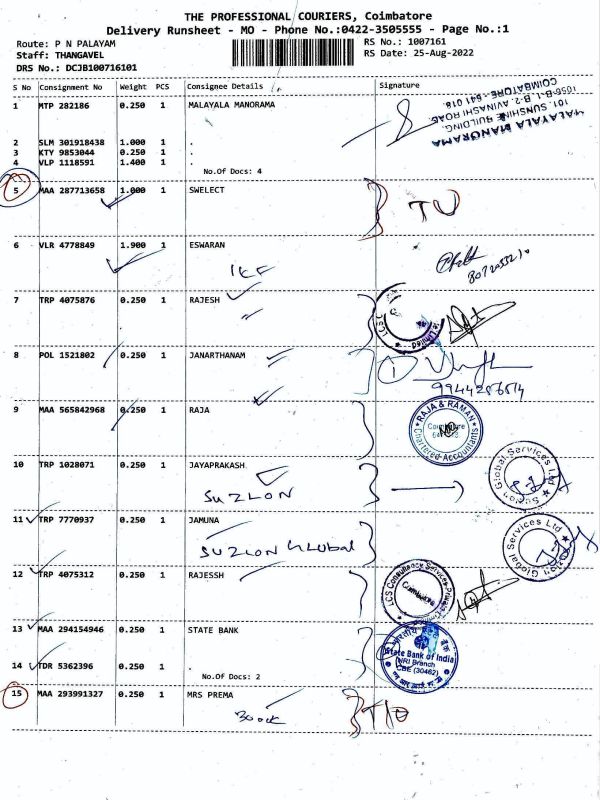 THE PROFESSIONAL COURIERS, Coimbatore
Delivery Runsheet - MO - Phone No.:0422-3505555 - Page No.:1
Route: P N PALAYAM
Staff: THANGAVEL
DRS No.: DCJB100716101
RS No.: 1007161
RS Date: 25-Aug-2022
S No Consignment No Weight PCS Consignee Details Signature
1 MTP 282186 0.250 1 MALAYALA MANORAMA
MALAYALA MANORAMA
101, SUNSHINE BUILDING,
1056-B-1, B-2, AVINASHI ROAD,
COIMBATORE - 641 018.
2 SLM 301918438 1.000 1 .
3 KTY 9853044 0.250 1 .
4 VLP 1118591 1.400 1 .
No.Of Docs: 4
5 MAA 287713658 1.000 1 SWELECT
6 VLR 4778849 1.900 1 ESWARAN
7 TRP 4075876 0.250 1 RAJESH
8 POL 1521802 0.250 1 JANARTHANAM
9 MAA 565842968 0.250 1 RAJA
RAJA & RAMAN
Chartered Accountants
10 TRP 1028071 0.250 1 JAYAPRAKASH
SUZLON
Suzlon Global Services Ltd
11 TRP 7770937 0.250 1 JAMUNA
SUZLON GLOBAL
Suzlon Global Services Ltd
12 TRP 4075312 0.250 1 RAJESSH
LCS Consultancy Services Private Limited
Coimbatore
13 MAA 294154946 0.250 1 STATE BANK
भारतीय स्टेट बैंक
State Bank of India
NRI Branch
CBE (30462)
14 TDR 5362396 0.250 1 .
No.Of Docs: 2
15 MAA 293991327 0.250 1 MRS PREMA